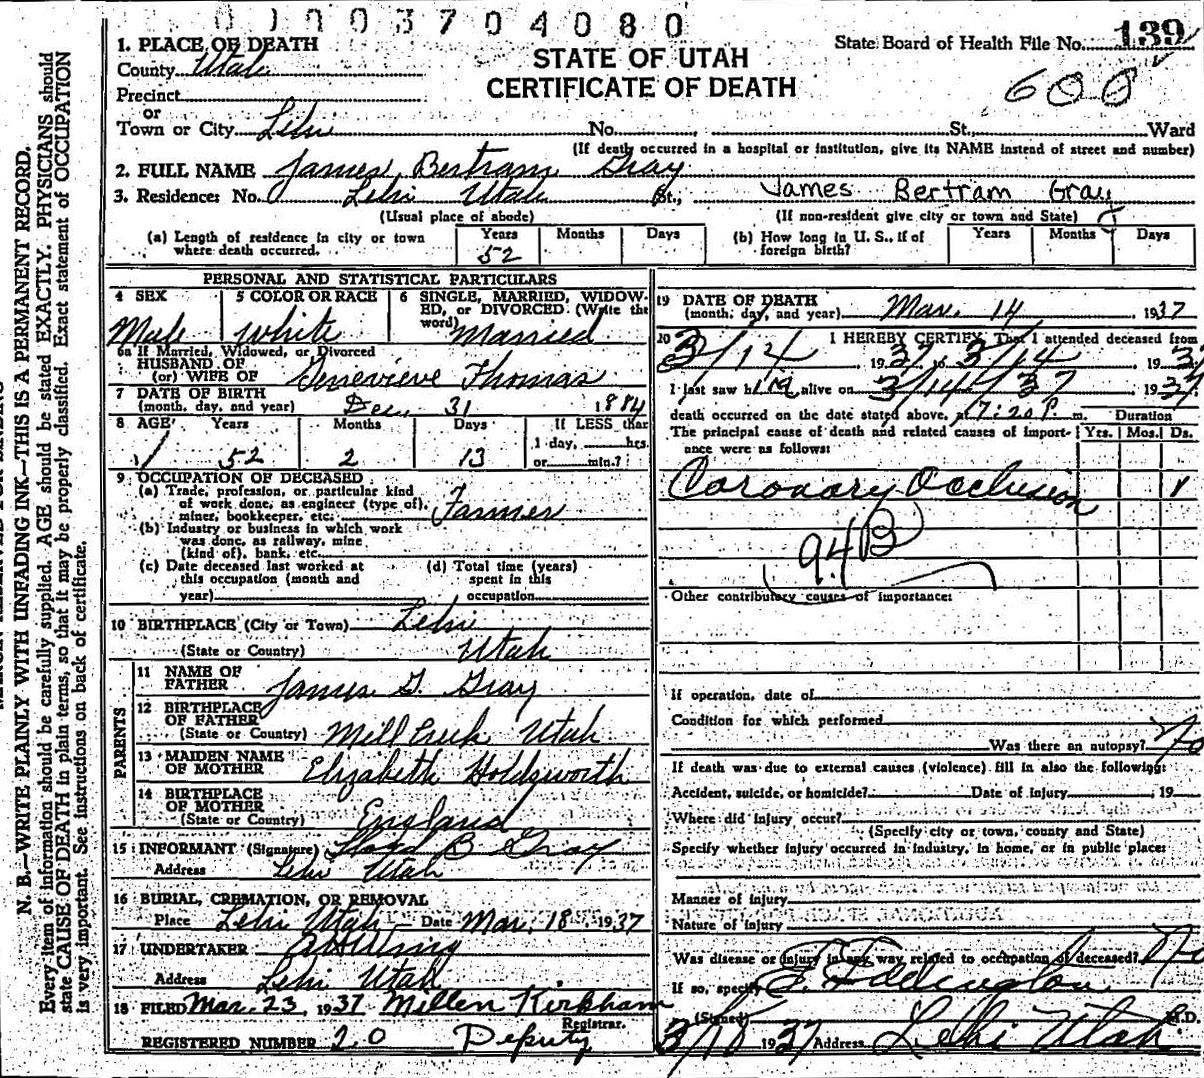 0 0 0 3 7 0 4 0 8 0
State Board of Health File No. 139
608
STATE OF UTAH
CERTIFICATE OF DEATH
1. PLACE OF DEATH
County Utah
Precinct
or
Town or City Lehi No. St., Ward
(If death occurred in a hospital or institution, give its NAME instead of street and number)
2. FULL NAME James Bertram Gray
3. Residence: No. Lehi Utah St., James Bertram Gray
(Usual place of abode) (If non-resident give city or town and State)
(a) Length of residence in city or town where death occurred. Years 52 Months Days
(b) How long in U. S., if of foreign birth? Years Months Days
PERSONAL AND STATISTICAL PARTICULARS
4 SEX Male
5 COLOR OR RACE White
6 SINGLE, MARRIED, WIDOWED, OR DIVORCED. (Write the word) Married
6a If Married, Widowed, or Divorced
HUSBAND OF
(or) WIFE OF Genevieve Thomas
7 DATE OF BIRTH
(month, day, and year) Dec. 31 1884
8 AGE Years 52 Months 2 Days 13
If LESS than
1 day, hrs.
or min.?
9 OCCUPATION OF DECEASED
(a) Trade, profession, or particular kind
of work done, as engineer (type of),
miner, bookkeeper, etc. Farmer
(b) Industry or business in which work
was done, as railway, mine
(kind of), bank, etc.
(c) Date deceased last worked at
this occupation (month and
year)
(d) Total time (years)
spent in this
occupation
10 BIRTHPLACE (City or Town) Lehi
(State or Country) Utah
PARENTS
11 NAME OF
FATHER James G. Gray
12 BIRTHPLACE
OF FATHER
(State or Country) Mill Creek Utah
13 MAIDEN NAME
OF MOTHER Elizabeth Holdsworth
14 BIRTHPLACE
OF MOTHER
(State or Country) England
15 INFORMANT (Signature) Lloyd B Gray
Address Lehi Utah
16 BURIAL, CREMATION, OR REMOVAL
Place Lehi Utah Date Mar. 18 1937
17 UNDERTAKER
Address Lehi Utah
18 FILED Mar. 23, 1937 Millen Kirkham
Registrar.
REGISTERED NUMBER 20 Deputy
19 DATE OF DEATH
(month, day, and year) Mar. 14 1937
20 I HEREBY CERTIFY, That I attended deceased from
3/14 1937 to 3/14 193
I last saw him alive on 3/14/37 1937
death occurred on the date stated above, at 7:20 P. m. Duration
The principal cause of death and related causes of importance were as follows: Yrs. Mos. Ds.
Coronary Occlusion 1
94B
Other contributory causes of importance:
If operation, date of
Condition for which performed
Was there an autopsy? No
If death was due to external causes (violence) fill in also the following:
Accident, suicide, or homicide? Date of injury 19
Where did injury occur?
(Specify city or town, county and State)
Specify whether injury occurred in industry, in home, or in public place:
Manner of injury
Nature of injury
Was disease or injury in any way related to occupation of deceased? No
If so, specify
(Signed) Eddington M.D.
3/18 1937 Address Lehi Utah
N. B.—WRITE PLAINLY WITH UNFADING INK—THIS IS A PERMANENT RECORD.
Every item of information should be carefully supplied. AGE should be stated EXACTLY. PHYSICIANS should
state CAUSE OF DEATH in plain terms, so that it may be properly classified. Exact statement of OCCUPATION
is very important. See instructions on back of certificate.